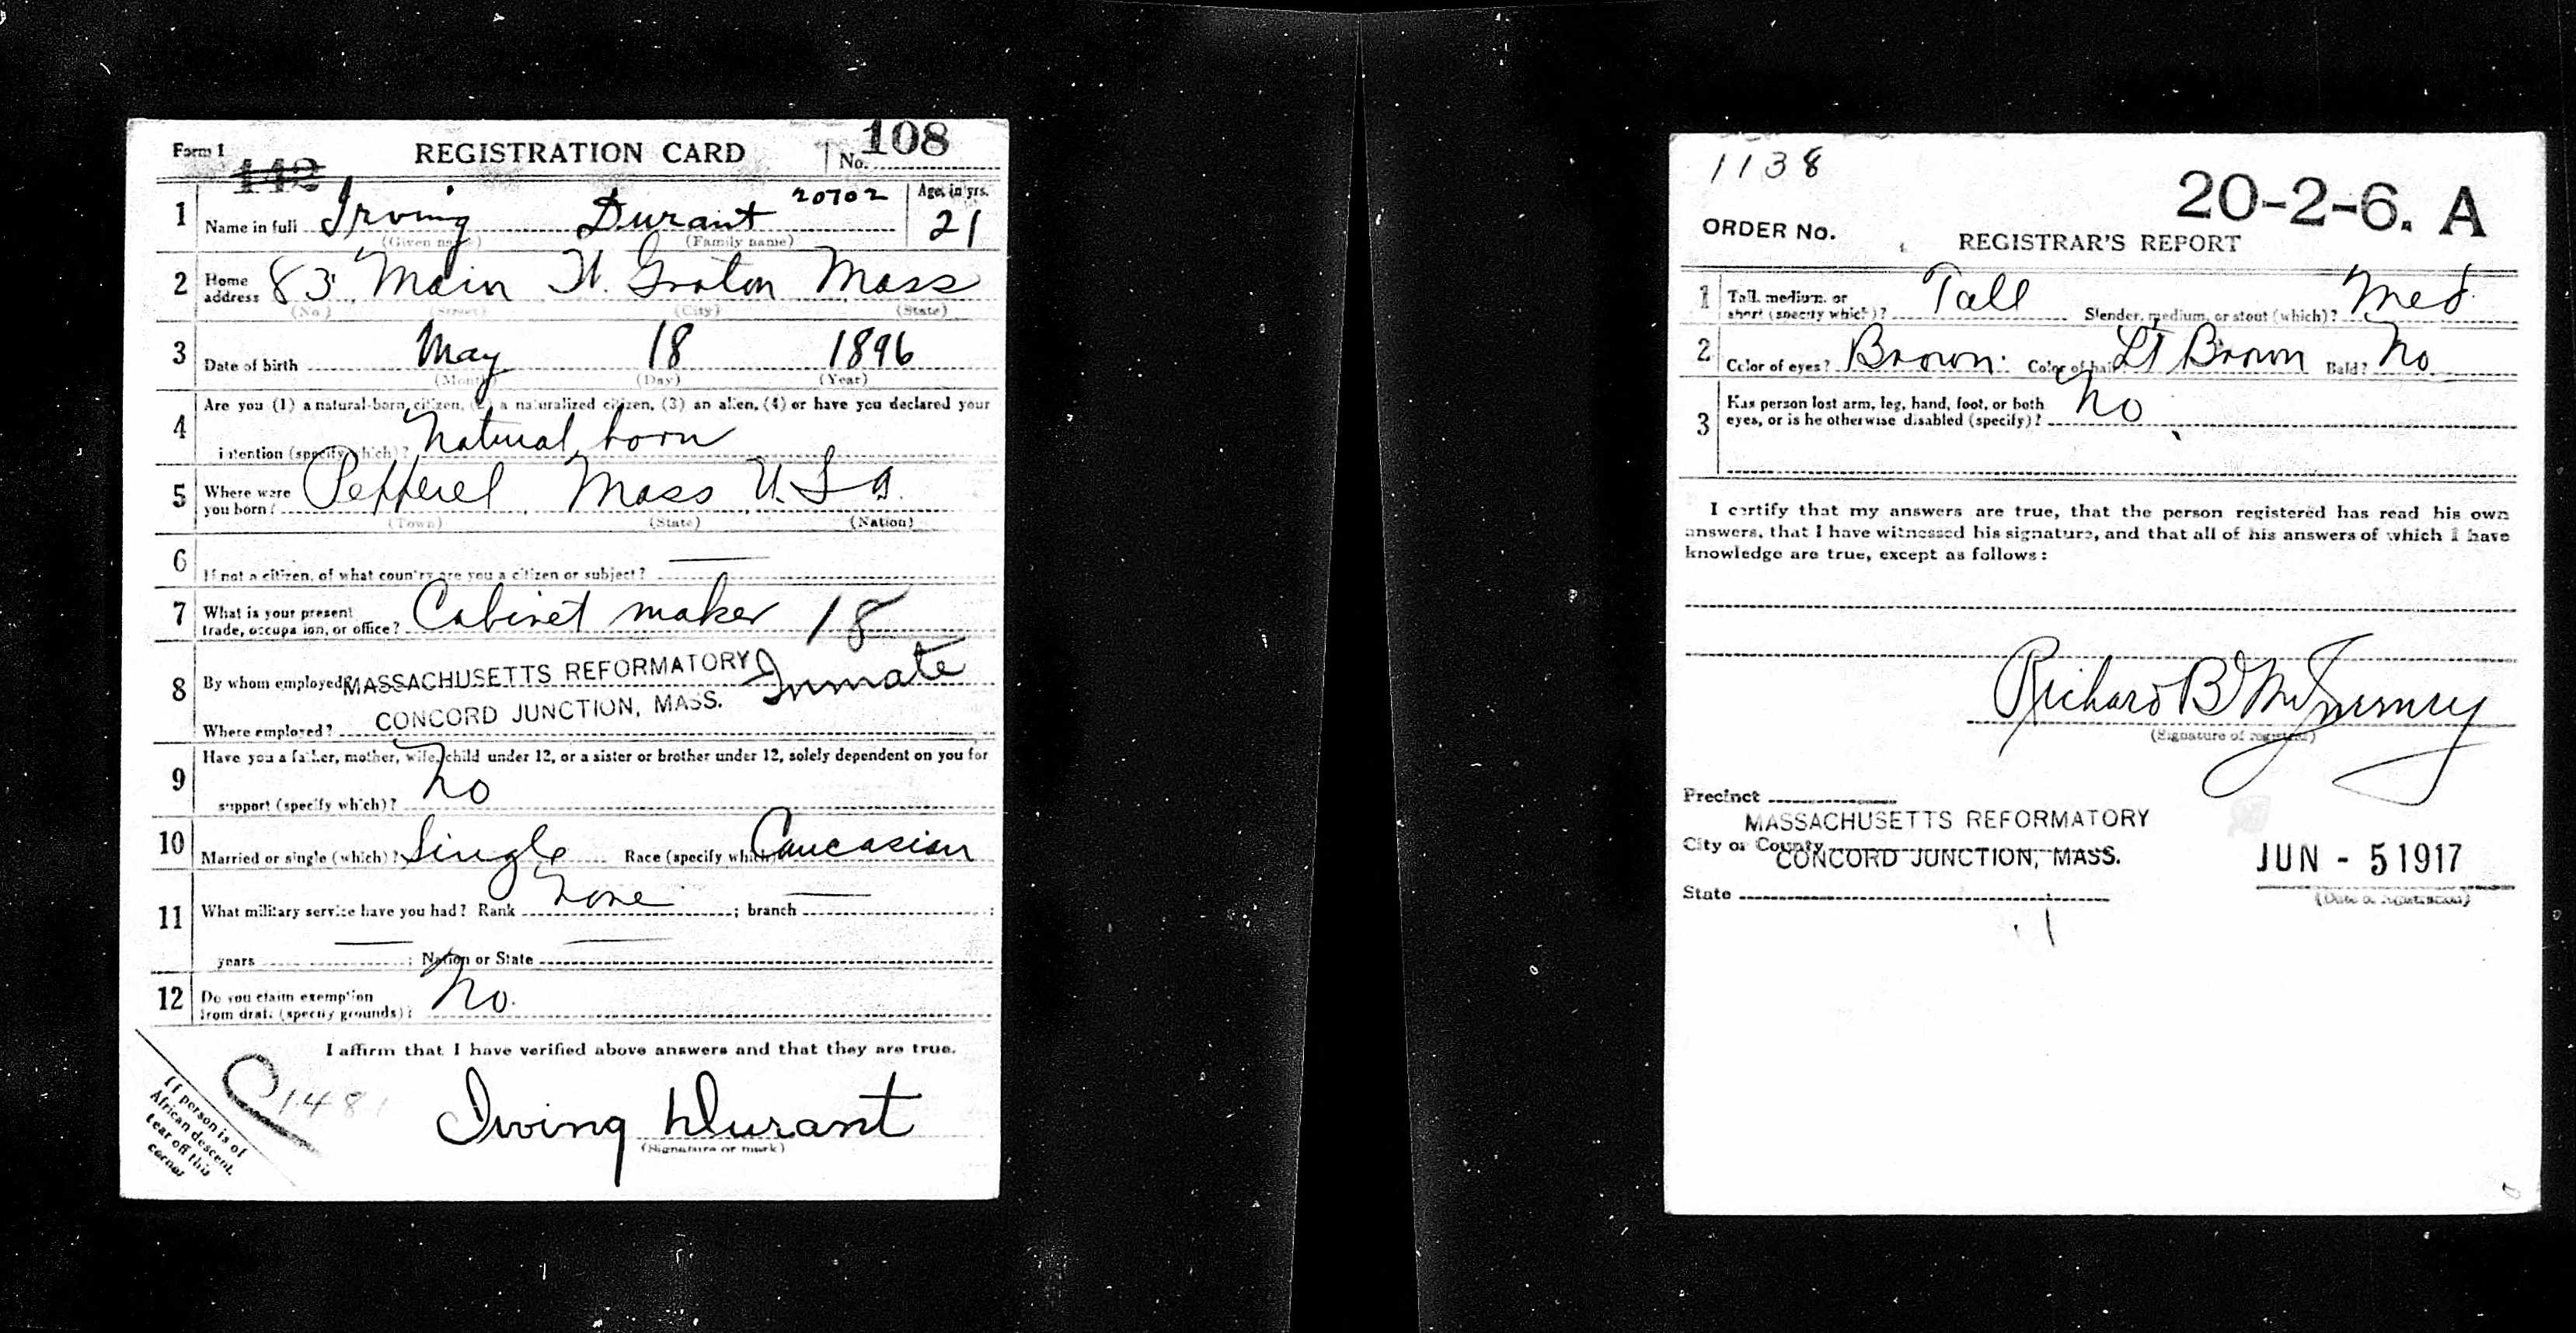 Form 1 REGISTRATION CARD No. 108
142
1 Name in full Irving Durant 20702 Age, in yrs. 21
(Given name) (Family name)
2 Home address 83 Main W. Groton Mass
(No.) (Street) (City) (State)
3 Date of birth May 18 1896
(Month) (Day) (Year)
4 Are you (1) a natural-born citizen, (2) a naturalized citizen, (3) an alien, (4) or have you declared your
intention (specify which)? Natural born
5 Where were you born? Pepperel Mass U.S.A.
(Town) (State) (Nation)
6 If not a citizen, of what country are you a citizen or subject?
7 What is your present trade, occupation, or office? Cabinet maker 18
8 By whom employed? MASSACHUSETTS REFORMATORY Inmate
Where employed? CONCORD JUNCTION, MASS.
9 Have you a father, mother, wife, child under 12, or a sister or brother under 12, solely dependent on you for
support (specify which)? No
10 Married or single (which)? Single Race (specify which)? Caucasian
11 What military service have you had? Rank None ; branch ;
years ; Nation or State
12 Do you claim exemption from draft (specify grounds)? No.
I affirm that I have verified above answers and that they are true.
Irving Durant
(Signature or mark)
If person is of
African descent,
tear off this
corner
1138
20-2-6. A
ORDER No.
REGISTRAR'S REPORT
1 Tall, medium, or short (specify which)? Tall Slender, medium, or stout (which)? Med
2 Color of eyes? Brown Color of hair? Lt Brown Bald? No
3 Has person lost arm, leg, hand, foot, or both
eyes, or is he otherwise disabled (specify)? No
I certify that my answers are true, that the person registered has read his own
answers, that I have witnessed his signature, and that all of his answers of which I have
knowledge are true, except as follows:
Richard B
(Signature of registrar)
Precinct
MASSACHUSETTS REFORMATORY
City or County
CONCORD JUNCTION, MASS.
JUN - 5 1917
State
(Date of registration)